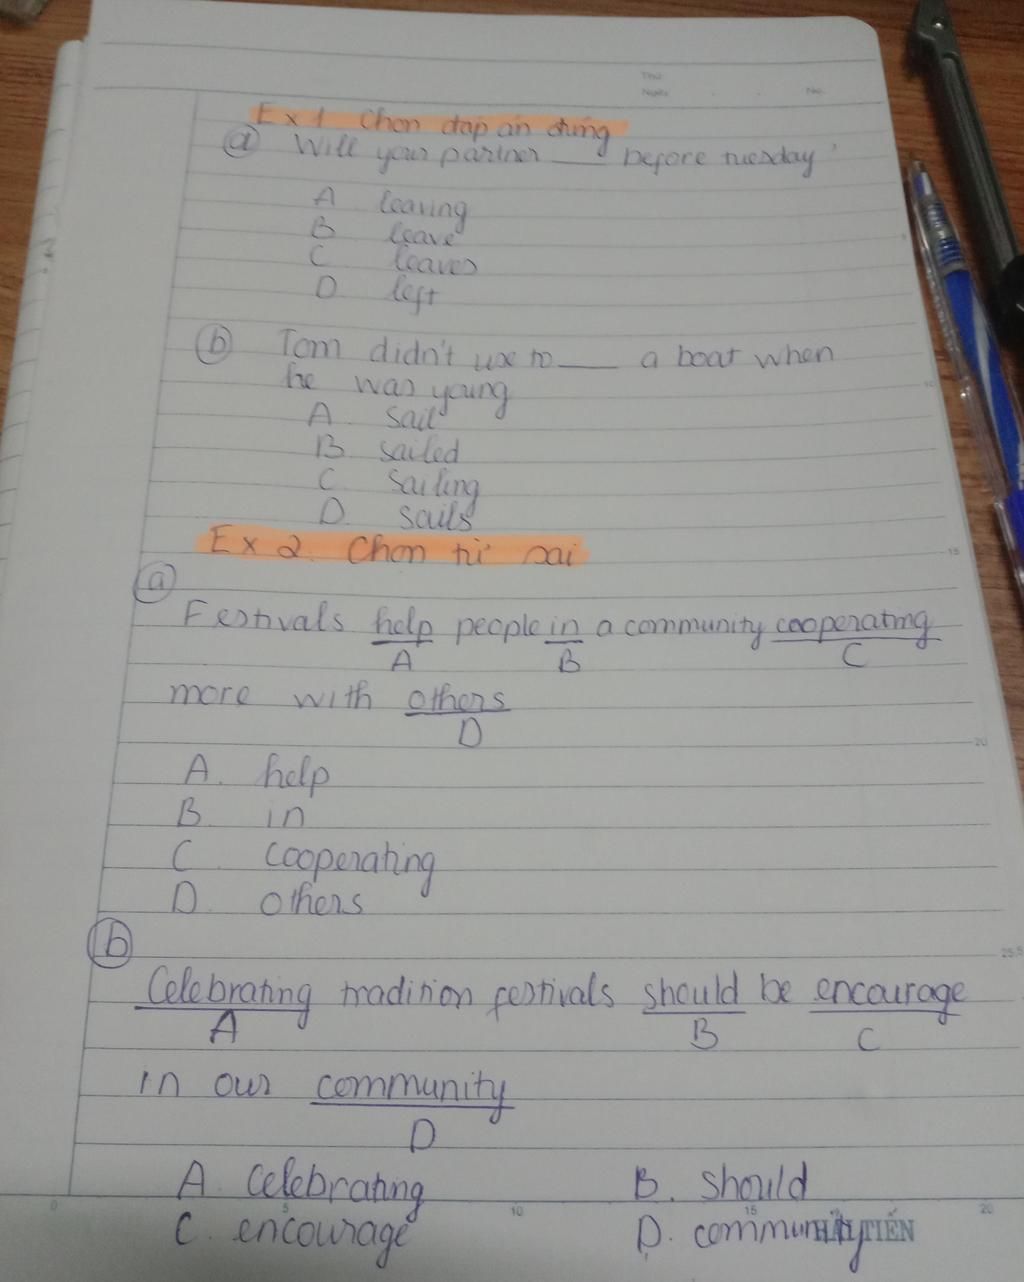 Thứ
Ngày . . No.
Ex 1 Chon đap an đung
a Will your partner ___ before tuesday
A leaving
B leave
C leaves
D. left
b Tom didn't use to ___ a boat when
he was young
A sail
B. sailed
C sailing
D. sails
Ex 2. Chon từ sai
a
Festivals help people in a community cooperating
A B C
more with others
D
A. help
B. in
C cooperating
D. others
b
Celebrating tradition festivals should be encourage
A B C
in our community
D
A. celebrating B. should
C. encourage D. community
0 5 10 15 20
HẢI TIẾN
5
10
15
20
25.5